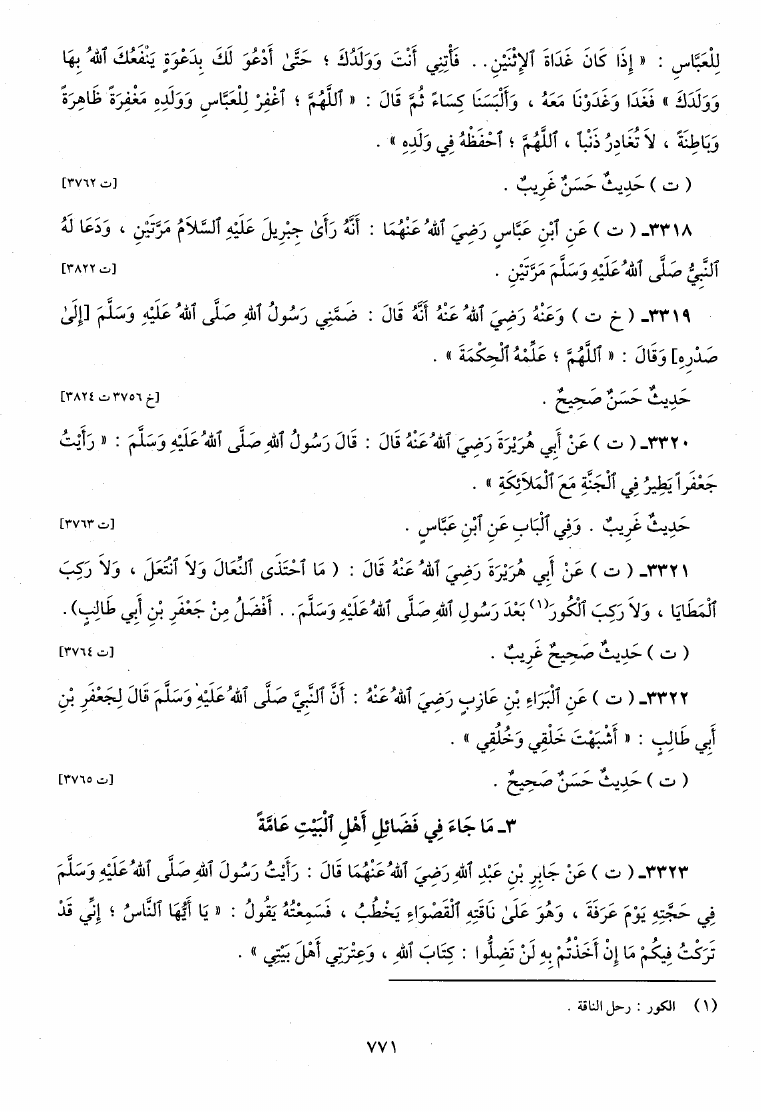 لِلْعَبَّاسِ : « إِذَا كَانَ غَدَاةَ ٱلِٱثْنَيْنِ . . فَأْتِنِي أَنْتَ وَوَلَدُكَ ؛ حَتَّىٰ أَدْعُوَ لَكَ بِدَعْوَةٍ يَنْفَعُكَ ٱللهُ بِهَا
وَوَلَدَكَ » فَغَدَا وَغَدَوْنَا مَعَهُ ، وَأَلْبَسَنَا كِسَاءً ثُمَّ قَالَ : « ٱللَّهُمَّ ؛ ٱغْفِرْ لِلْعَبَّاسِ وَوَلَدِهِ مَغْفِرَةً ظَاهِرَةً
وَبَاطِنَةً ، لاَ تُغَادِرُ ذَنْباً ، ٱللَّهُمَّ ؛ ٱحْفَظْهُ فِي وَلَدِهِ » .
( ت ) حَدِيثٌ حَسَنٌ غَرِيبٌ . [ت ٣٧٦٢]
٣٣١٨ـ ( ت ) عَنِ ٱبْنِ عَبَّاسٍ رَضِيَ ٱللهُ عَنْهُمَا : أَنَّهُ رَأَىٰ جِبْرِيلَ عَلَيْهِ ٱلسَّلاَمُ مَرَّتَيْنِ ، وَدَعَا لَهُ
ٱلنَّبِيُّ صَلَّى ٱللهُ عَلَيْهِ وَسَلَّمَ مَرَّتَيْنِ . [ت ٣٨٢٢]
٣٣١٩ـ ( خ ت ) وَعَنْهُ رَضِيَ ٱللهُ عَنْهُ أَنَّهُ قَالَ : ضَمَّنِي رَسُولُ ٱللهِ صَلَّى ٱللهُ عَلَيْهِ وَسَلَّمَ [إِلَىٰ
صَدْرِهِ] وَقَالَ : « ٱللَّهُمَّ ؛ عَلِّمْهُ ٱلْحِكْمَةَ » .
حَدِيثٌ حَسَنٌ صَحِيحٌ . [خ ٣٧٥٦ ت ٣٨٢٤]
٣٣٢٠ـ ( ت ) عَنْ أَبِي هُرَيْرَةَ رَضِيَ ٱللهُ عَنْهُ قَالَ : قَالَ رَسُولُ ٱللهِ صَلَّى ٱللهُ عَلَيْهِ وَسَلَّمَ : « رَأَيْتُ
جَعْفَراً يَطِيرُ فِي ٱلْجَنَّةِ مَعَ ٱلْمَلاَئِكَةِ » .
حَدِيثٌ غَرِيبٌ . وَفِي ٱلْبَابِ عَنِ ٱبْنِ عَبَّاسٍ . [ت ٣٧٦٣]
٣٣٢١ـ ( ت ) عَنْ أَبِي هُرَيْرَةَ رَضِيَ ٱللهُ عَنْهُ قَالَ : ( مَا ٱحْتَذَى ٱلنِّعَالَ وَلاَ ٱنْتَعَلَ ، وَلاَ رَكِبَ
ٱلْمَطَايَا ، وَلاَ رَكِبَ ٱلْكُورَ(١) بَعْدَ رَسُولِ ٱللهِ صَلَّى ٱللهُ عَلَيْهِ وَسَلَّمَ. . أَفْضَلُ مِنْ جَعْفَرِ بْنِ أَبِي طَالِبٍ).
( ت ) حَدِيثٌ صَحِيحٌ غَرِيبٌ . [ت ٣٧٦٤]
٣٣٢٢ـ ( ت ) عَنِ ٱلْبَرَاءِ بْنِ عَازِبٍ رَضِيَ ٱللهُ عَنْهُ : أَنَّ ٱلنَّبِيَّ صَلَّى ٱللهُ عَلَيْهِ وَسَلَّمَ قَالَ لِجَعْفَرِ بْنِ
أَبِي طَالِبٍ : « أَشْبَهْتَ خَلْقِي وَخُلُقِي » .
( ت ) حَدِيثٌ حَسَنٌ صَحِيحٌ . [ت ٣٧٦٥]
٣ـ مَا جَاءَ فِي فَضَائِلِ أَهْلِ ٱلْبَيْتِ عَامَّةً
٣٣٢٣ـ ( ت ) عَنْ جَابِرِ بْنِ عَبْدِ ٱللهِ رَضِيَ ٱللهُ عَنْهُمَا قَالَ : رَأَيْتُ رَسُولَ ٱللهِ صَلَّى ٱللهُ عَلَيْهِ وَسَلَّمَ
فِي حَجَّتِهِ يَوْمَ عَرَفَةَ ، وَهُوَ عَلَىٰ نَاقَتِهِ ٱلْقَصْوَاءِ يَخْطُبُ ، فَسَمِعْتُهُ يَقُولُ : « يَا أَيُّهَا ٱلنَّاسُ ؛ إِنِّي قَدْ
تَرَكْتُ فِيكُمْ مَا إِنْ أَخَذْتُمْ بِهِ لَنْ تَضِلُّوا : كِتَابَ ٱللهِ ، وَعِتْرَتِي أَهْلَ بَيْتِي » .
(١) الكور : رحل الناقة .
٧٧١